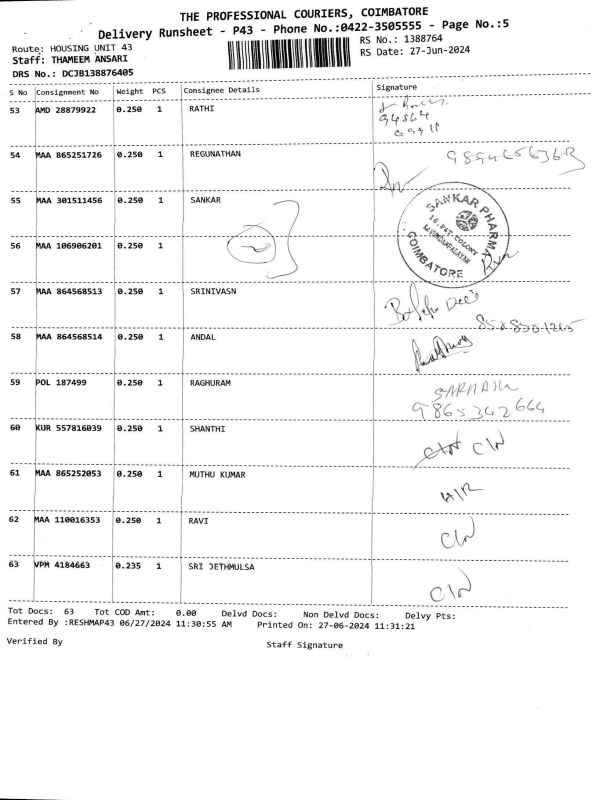 THE PROFESSIONAL COURIERS, COIMBATORE
Delivery Runsheet - P43 - Phone No.:0422-3505555 - Page No.:5
Route: HOUSING UNIT 43
RS No.: 1388764
Staff: THAMEEM ANSARI
RS Date: 27-Jun-2024
DRS No.: DCJB138876405
S No Consignment No Weight PCS Consignee Details Signature
53 AMD 28879922 0.250 1 RATHI
94564
09911
54 MAA 865251726 0.250 1 REGUNATHAN
55 MAA 301511456 0.250 1 SANKAR
SANKAR PHARMA
16, P&T COLONY
KAVUNDAMPALAYAM
COIMBATORE
56 MAA 106906201 0.250 1
2
57 MAA 864568513 0.250 1 SRINIVASN
58 MAA 864568514 0.250 1 ANDAL
59 POL 187499 0.250 1 RAGHURAM
9865342664
60 KUR 557816039 0.250 1 SHANTHI
C/N C/N
61 MAA 865252053 0.250 1 MUTHU KUMAR
H/R
62 MAA 110016353 0.250 1 RAVI
C/N
63 VPM 4184663 0.235 1 SRI JETHMULSA
C/N
Tot Docs: 63 Tot COD Amt: 0.00 Delvd Docs: Non Delvd Docs: Delvy Pts:
Entered By :RESHMAP43 06/27/2024 11:30:55 AM Printed On: 27-06-2024 11:31:21
Verified By
Staff Signature